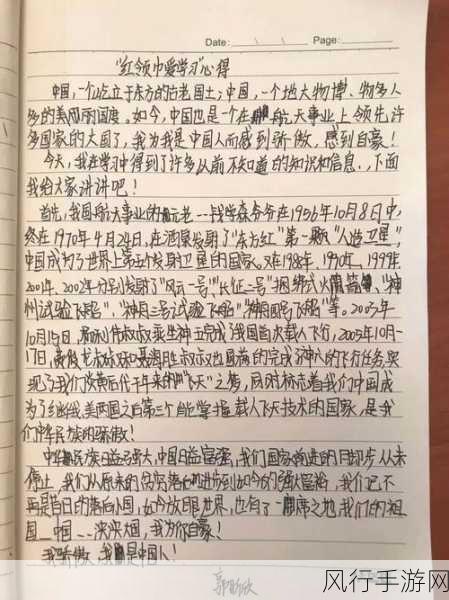 Date: Page:
"红领巾爱学习"心得
中国,一个屹立于东方的古老国土;中国,一个地大物博、物多人
多的美丽国度,如今,中国也是一个在航天事业上领先许
多国家的大国了,我为我是中国人而感到骄傲,感到自豪!
今天,我在学习中得到了许多从前不知道的知识和信息,下面
我给大家讲讲吧!
首先,我国航天事业的元老——钱学森爷爷在1956年10月8日中,
终在1970年4月24日,在酒泉发射了"东方红"第一颗"人造卫星",
中国成为了世界上第五个发射卫星的国家。又在1988年、1990年、1999年、
2001年、2002年分别发射了"风云一号""长征二号"捆绑式火箭、"神
州试验飞船"、"神舟三号试验飞船""神舟四号飞船"等。2003年
10月15日,杨利伟叔叔乘坐神五完成了我国首次载人飞行,2005年10月
17日,费俊龙叔叔和聂海胜叔叔也圆满的完成神六的飞行任务,实
现了我们炎黄后代千年来的"飞天"之梦,同时标志着我们中国成
为了继俄美两国之后第三个能掌握载人飞天技术的国家,是我
们中华民族的骄傲!
中华民族日益强大,中国日益富强,我们国家前进的脚步从未
停止,我们从原来的贫穷落后进步到如今的强大富裕,我们已不
再是昔日的落后小国,如今放眼世界,也有了一席之地,我们的祖
国——中国——泱泱大国,我为你自豪!
我骄傲,我是中国人!
风行手游网